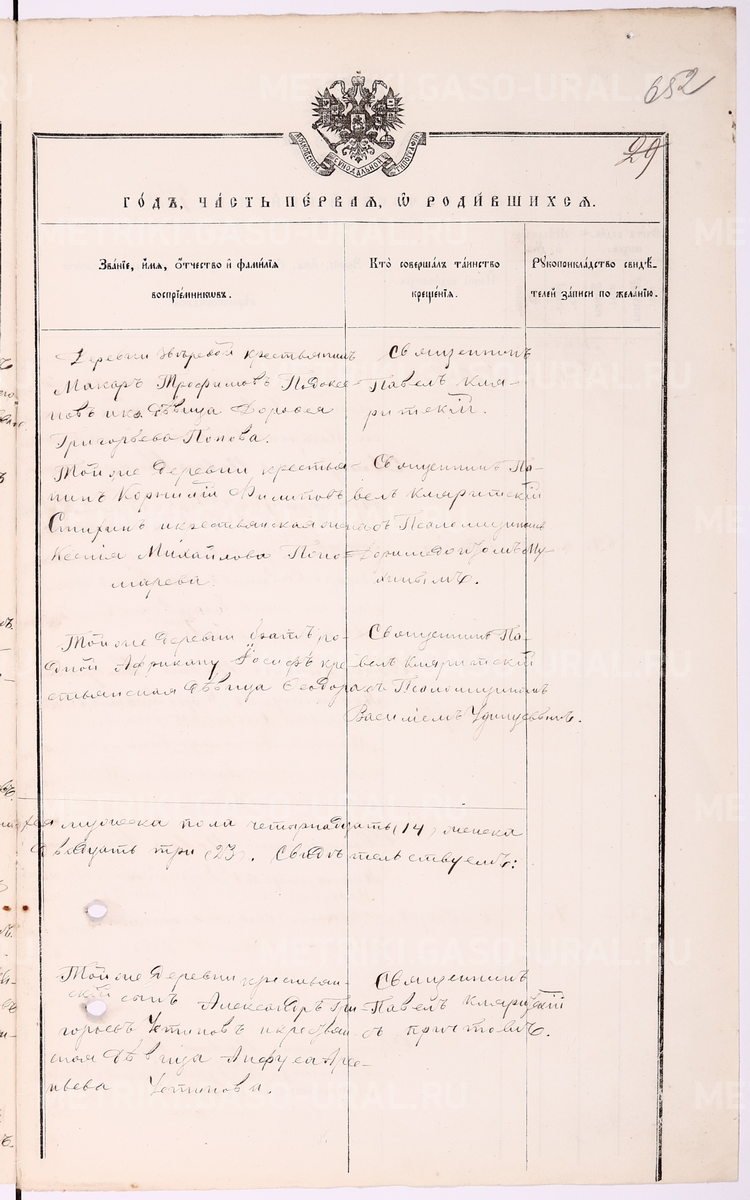 652
29
МОСКОВСКОЙ СѴНОДАЛЬНОЙ ТИПОГРАФІИ
ГО́ДЪ, ЧА́СТЬ ПЕ́РВАЯ, Ѡ РОДИ́ВШИХСЯ.
Зва́ніе, и҆́мя, ѻ҆́тчество и҆ фами́лія
воспріе́мниковъ.
Кто̀ соверша́лъ та́инство
креще́нія.
Рꙋкоприкла́дство свидѣ́-
телей за́писи по жела́нію.
Деревни крестьянинъ
Макаръ Трофимовъ
дѣвица
Григорьева Попова.
Священникъ
Павелъ Кля-
ритскій.
Той же деревни крестья-
нинъ Корнилій Филиповъ
и крестьянская жена
Ксенія Михайлова Поно-
марева.
Священникъ Па-
велъ Кляритскій
съ Псаломщикомъ
Той же деревни братъ ро-
дной Африкану Іосифъ кре-
стьянская дѣвица Ѳеодора
Священникъ Па-
велъ Кляритскій
съ Псаломщикомъ
Василіемъ
мужеска пола четырнадцать (14) женска
двадцать три (23). Свидѣтельствуемъ:
Той же деревни крестьян-
скій сынъ Александръ Гри-
горьевъ Устиновъ и крестьян-
ская дѣвица Анфуса Арсе-
ньева Устинова.
Священникъ
Павелъ Кляритскій
съ причтомъ.
METRIKI.GASO-URAL.RU